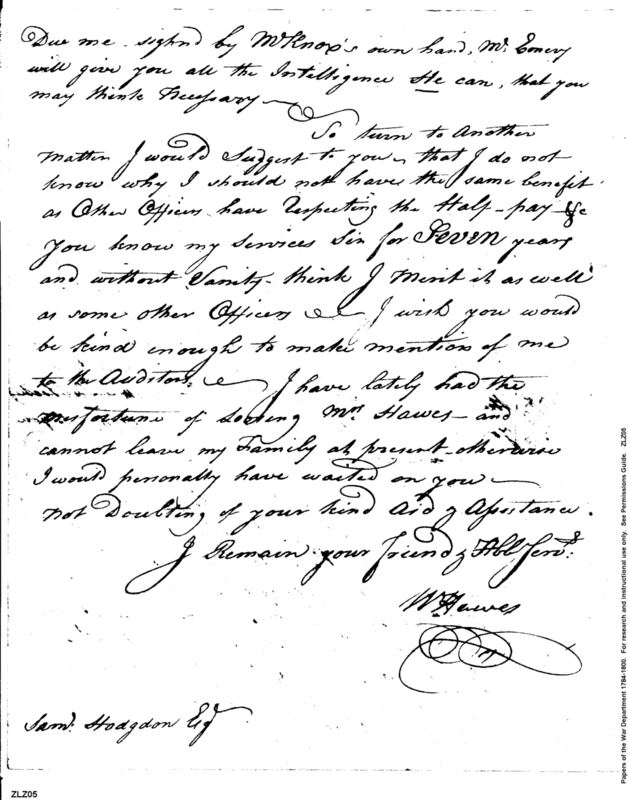 Due me signd by Mr Knox's own hand, Mr Emery
will give you all the Intelligence He can, that you
may think Necessary —
To turn to Another
Matter I would Suggest to you, that I do not
know why I should not have the same benefit
as Other Officers have Respecting the Half-pay &c
you know my services Sir for Seven years
and without Vanity think I Merit it as well
as some other Officers — I wish you would
be kind enough to make mention of me
to the Auditors, — I have lately had the
misfortune of Loosing Mrs Hawes — and
cannot leave my Family at present otherwise
I would personally have waited on you —
not Doubting of your kind Aid & Assistance.
I Remain your friend & Hbl Servt.
Wm Hawes
Saml Hodgdon Esq
ZLZ05
Papers of the War Department 1784-1800. For research and instructional use only. See Permissions Guide. ZLZ05